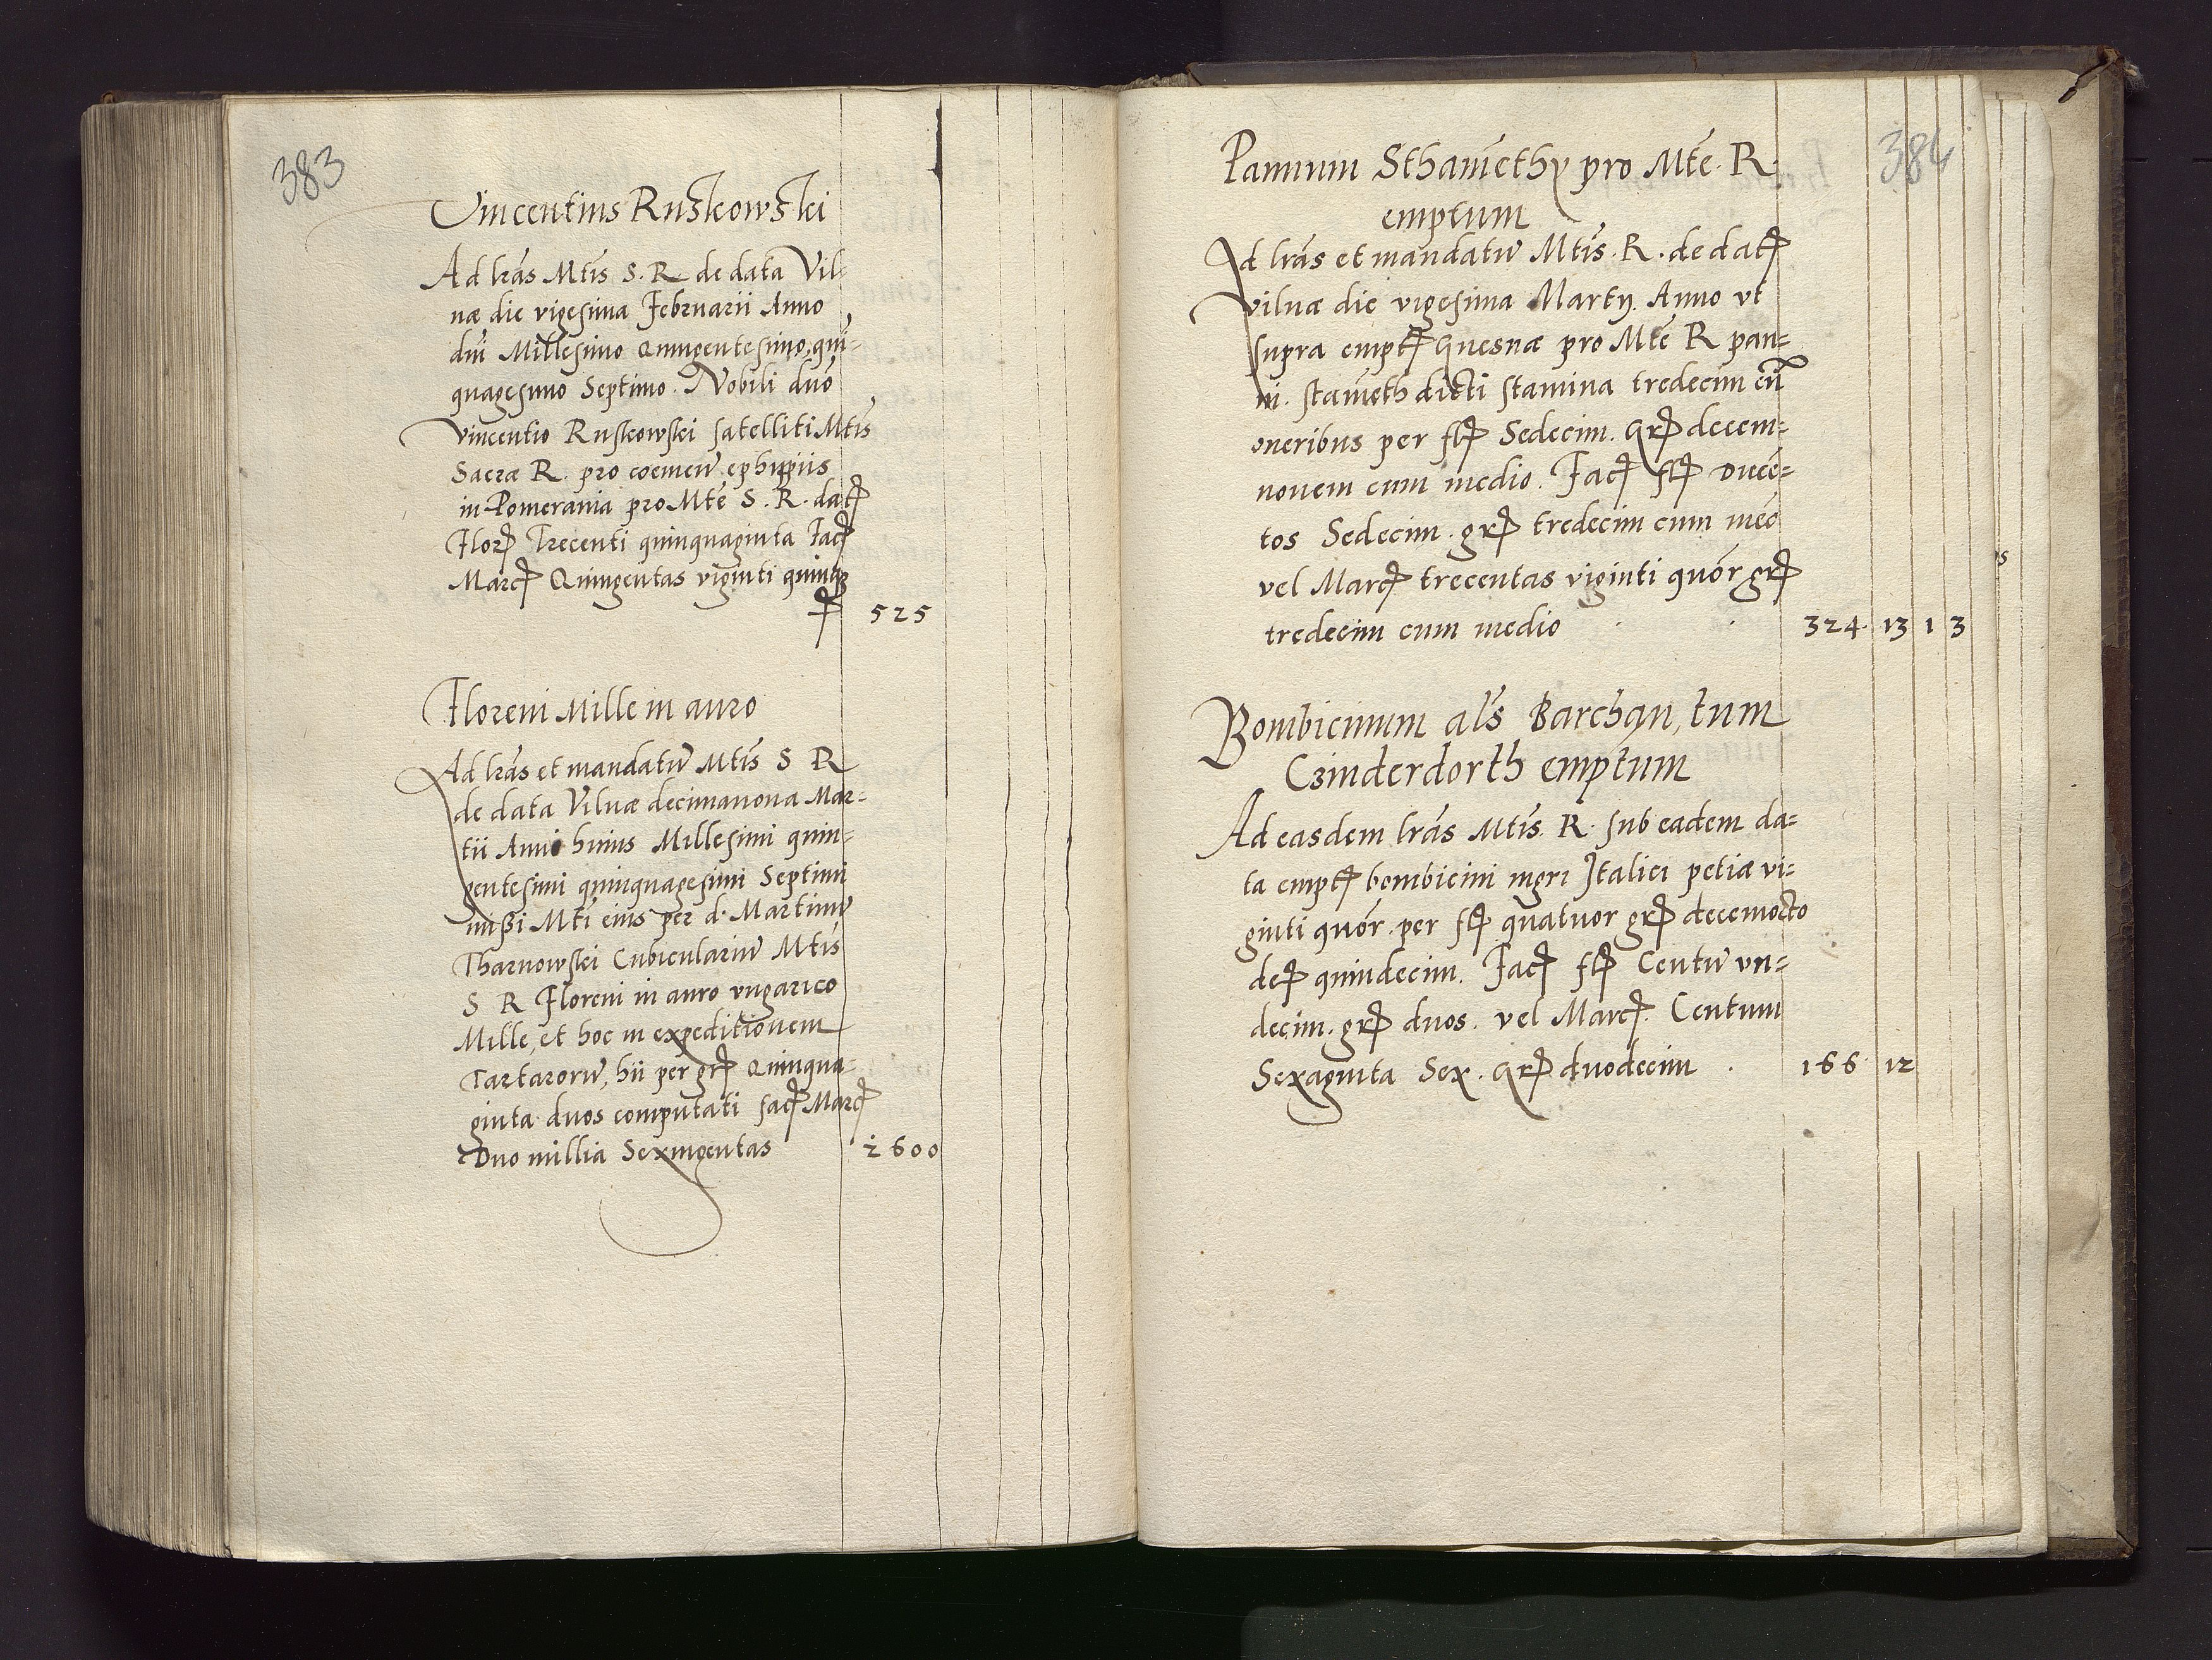 383
Vincentius Ruskowski
Ad lrãs Mtis S. R. de data Vil-
næ die vigesima Februarii Anno
dni Millesimo Quingentesimo, qui-
quagesimo Septimo. Nobili dno
Vincentio Ruskowski satelliti Mtis
Sacræ R. pro coemen̄ ephippiis
in Pomerania pro Mte S. R. datꝭ
Florꝭ Trecenti quinquaginta Facꝭ
Marcꝭ Quingentas viginti quinqꝫ
525
Floreni Mille in auro
Ad lrãs et mandatũ Mtis S R
de data Vilnæ decimanona Mar-
tii Anni huius Millesimi quin-
gentesimi quinquagesimi Septimi
missi Mti eius per d. Martinũ
Tharnowski Cubiculariũ Mtis
S R Floreni in auro vngarico
Mille, et hoc in expeditionem
Tartarorũ, hii per grꝭ Quinqua-
ginta duos computati facꝭ Marcꝭ
Duo millia Sexingentas 2600
384
Pannum Sthamethy pro Mte. R.
emptum
Ad lrãs et mandatũ Mtis. R. de datꝭ
Vilnæ die vigesima Martij. Anno vt
supra emptꝭ Gnesnæ pro Mte R pan-
ni. stameth dicti stamina tredecim cũ
oneribus per flꝭ Sedecim. Grꝭ decem-
novem cum medio. Facꝭ flꝭ Ducẽ-
tos Sedecim. grꝭ tredecim cum meõ
vel Marcꝭ trecentas viginti quõr grꝭ
tredecim cum medio 324 13 1 3
Bombicinum als Barchan, tum
Czinderdorth emptum
Ad easdem lrãs Mtis. R. sub eadem da-
ta emptꝭ bombicini nigri Italici petiæ vi-
ginti quõr. per flꝭ quatuor grꝭ decemocto
deꝭ quindecim. Facꝭ flꝭ Centũ vn-
decim. grꝭ duos. vel Marcꝭ. Centum
Sexaginta Sex. Grꝭ duodecim 166 12